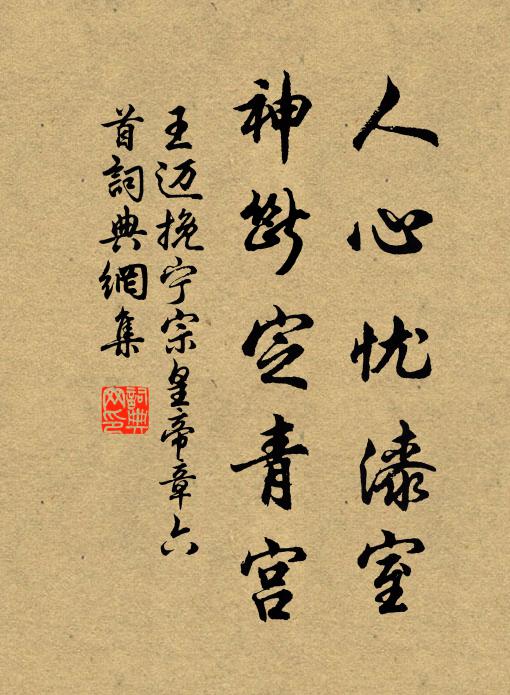 人心忧漆室
神斷定青宫
王迈挽宁宗皇帝章六
首詞典網集
詞典
网印